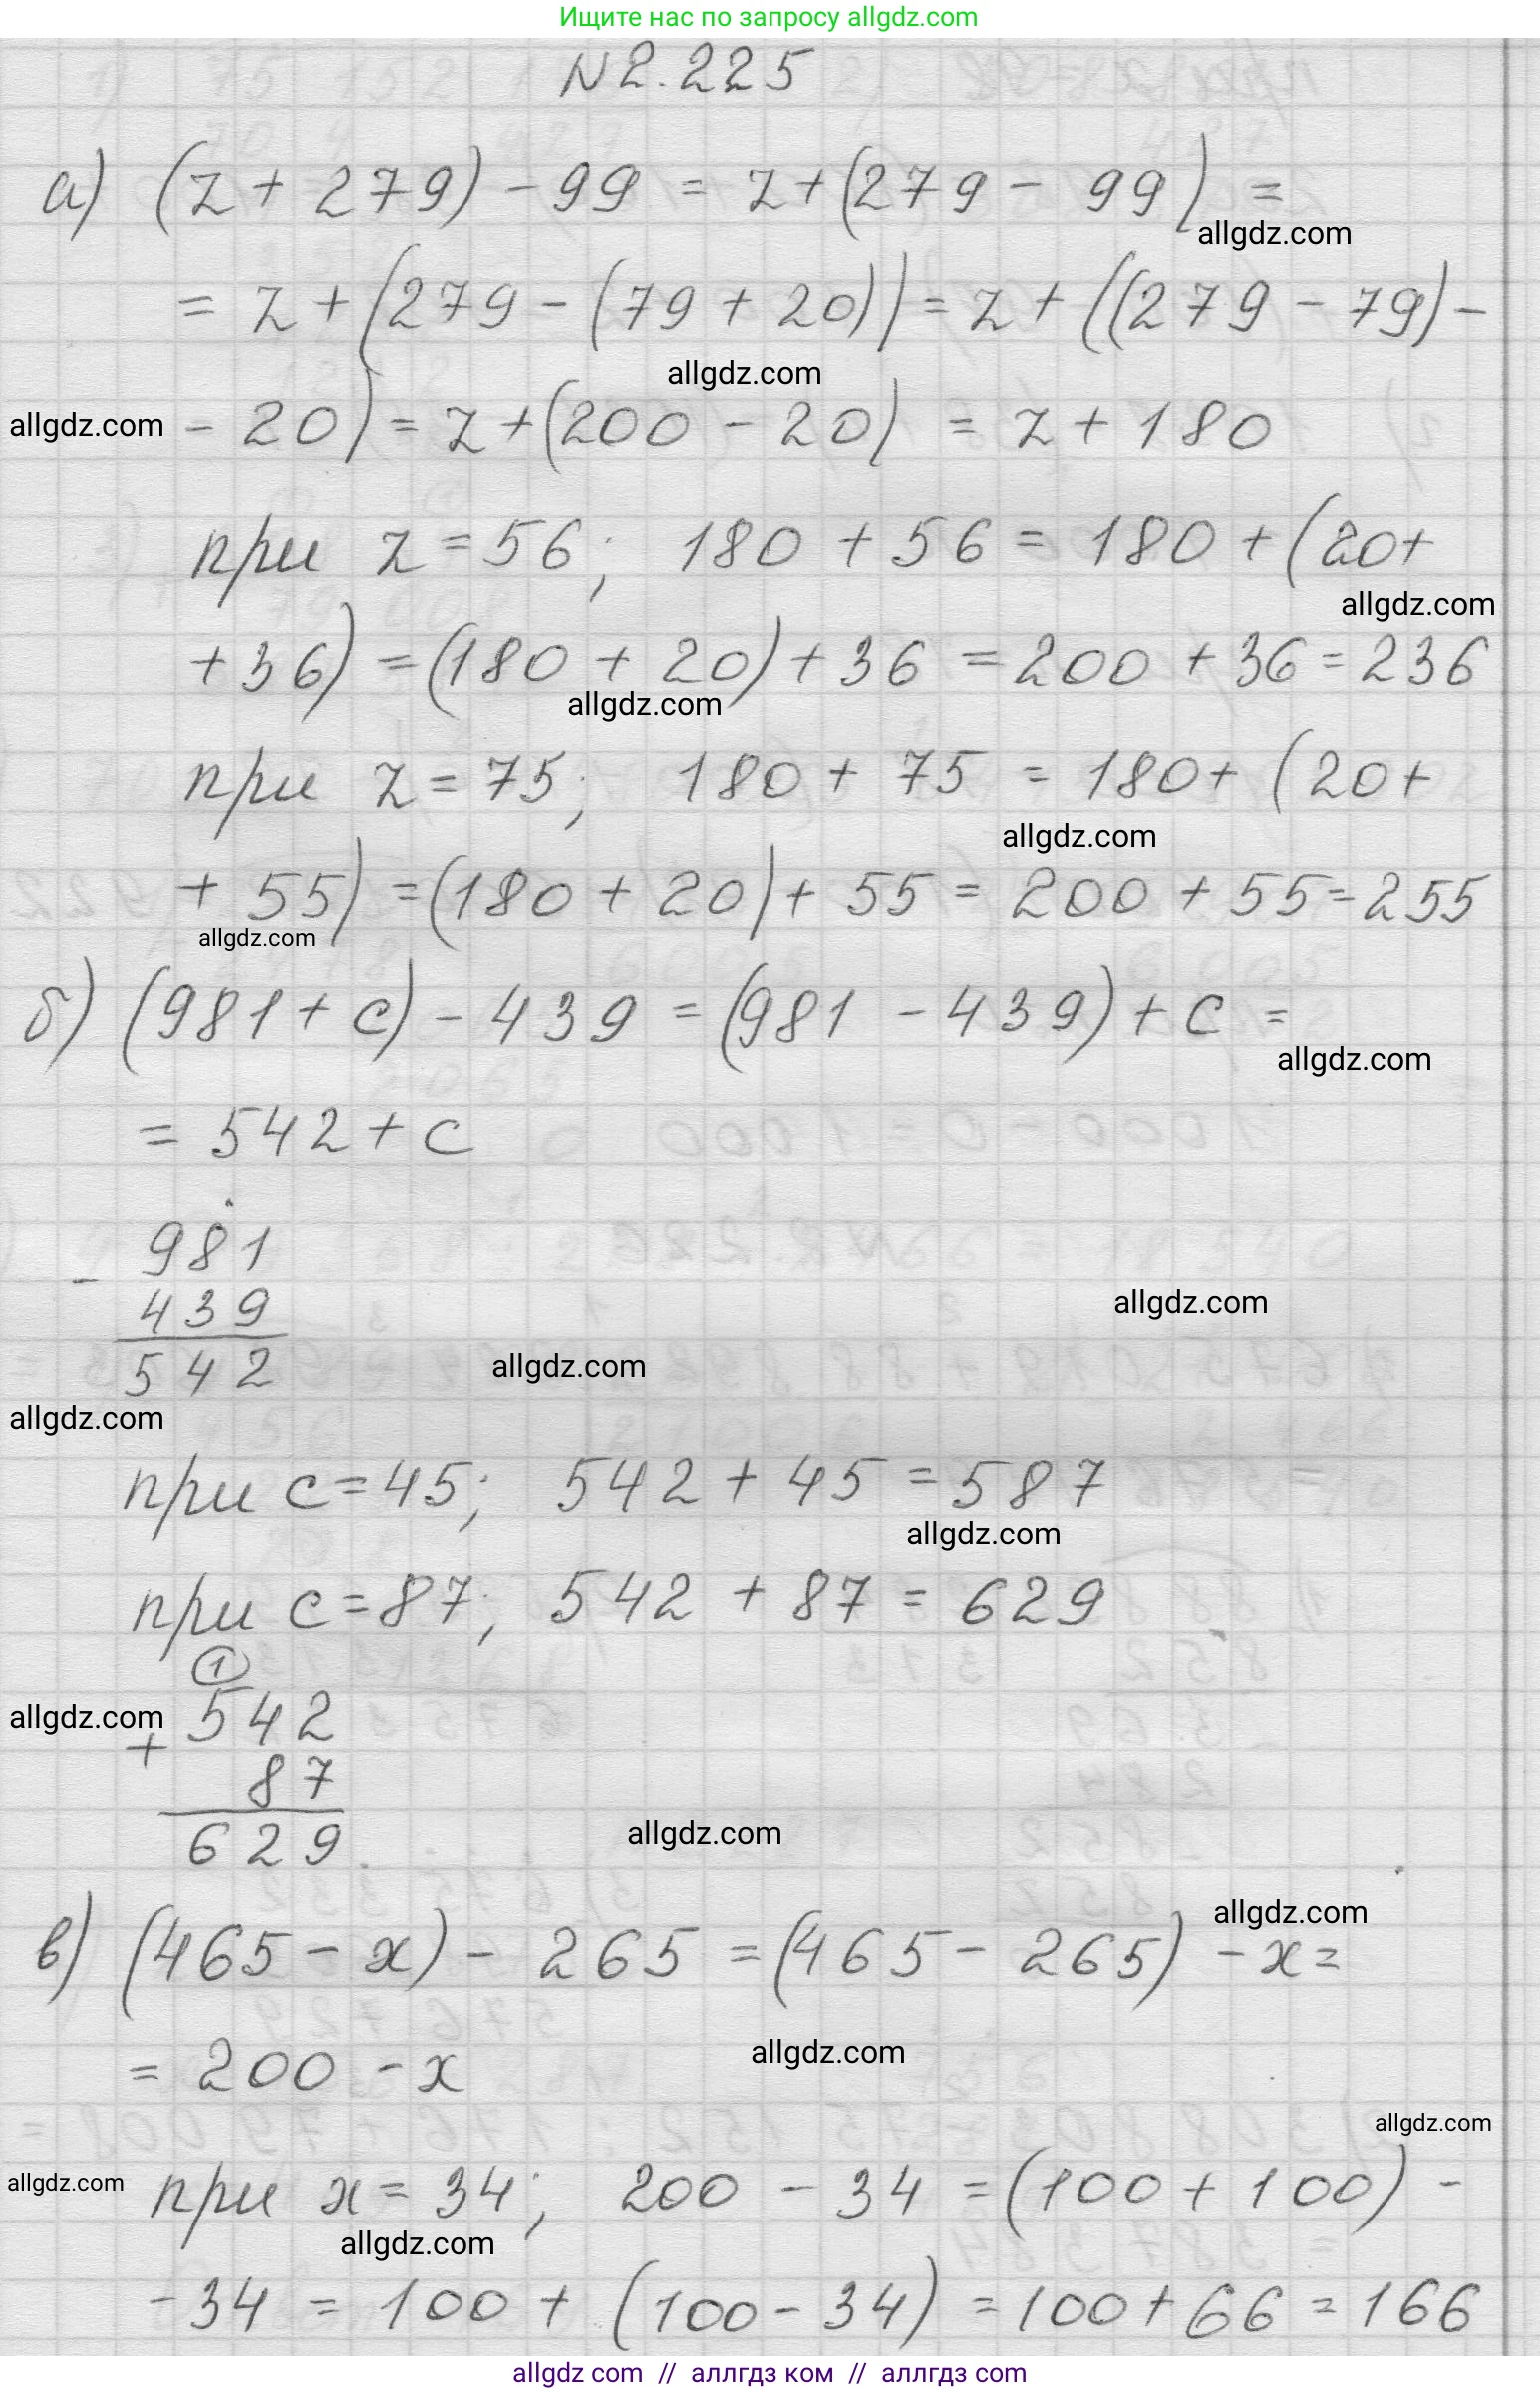 Ищите нас по запросу allgdz.com
N 2.225
а) (z + 279) - 99 = z + (279 - 99) =
allgdz.com
= z + (279 - (79 + 20)) = z + ((279 - 79) -
allgdz.com
allgdz.com - 20) = z + (200 - 20) = z + 180
при z = 56; 180 + 56 = 180 + (20+
allgdz.com
+ 36) = (180 + 20) + 36 = 200 + 36 = 236
allgdz.com
при z = 75; 180 + 75 = 180 + (20+
allgdz.com
+ 55) = (180 + 20) + 55 = 200 + 55 = 255
allgdz.com
б) (981 + c) - 439 = (981 - 439) + c =
allgdz.com
= 542 + c
981
-
439
allgdz.com
542
allgdz.com
allgdz.com
при c = 45; 542 + 45 = 587
allgdz.com
при c = 87; 542 + 87 = 629
1
allgdz.com 542
+
87
629
allgdz.com
allgdz.com
в) (465 - x) - 265 = (465 - 265) - x =
= 200 - x
allgdz.com
allgdz.com
allgdz.com при x = 34; 200 - 34 = (100 + 100) -
allgdz.com
- 34 = 100 + (100 - 34) = 100 + 66 = 166
allgdz com // аллгдз ком // аллгдз com